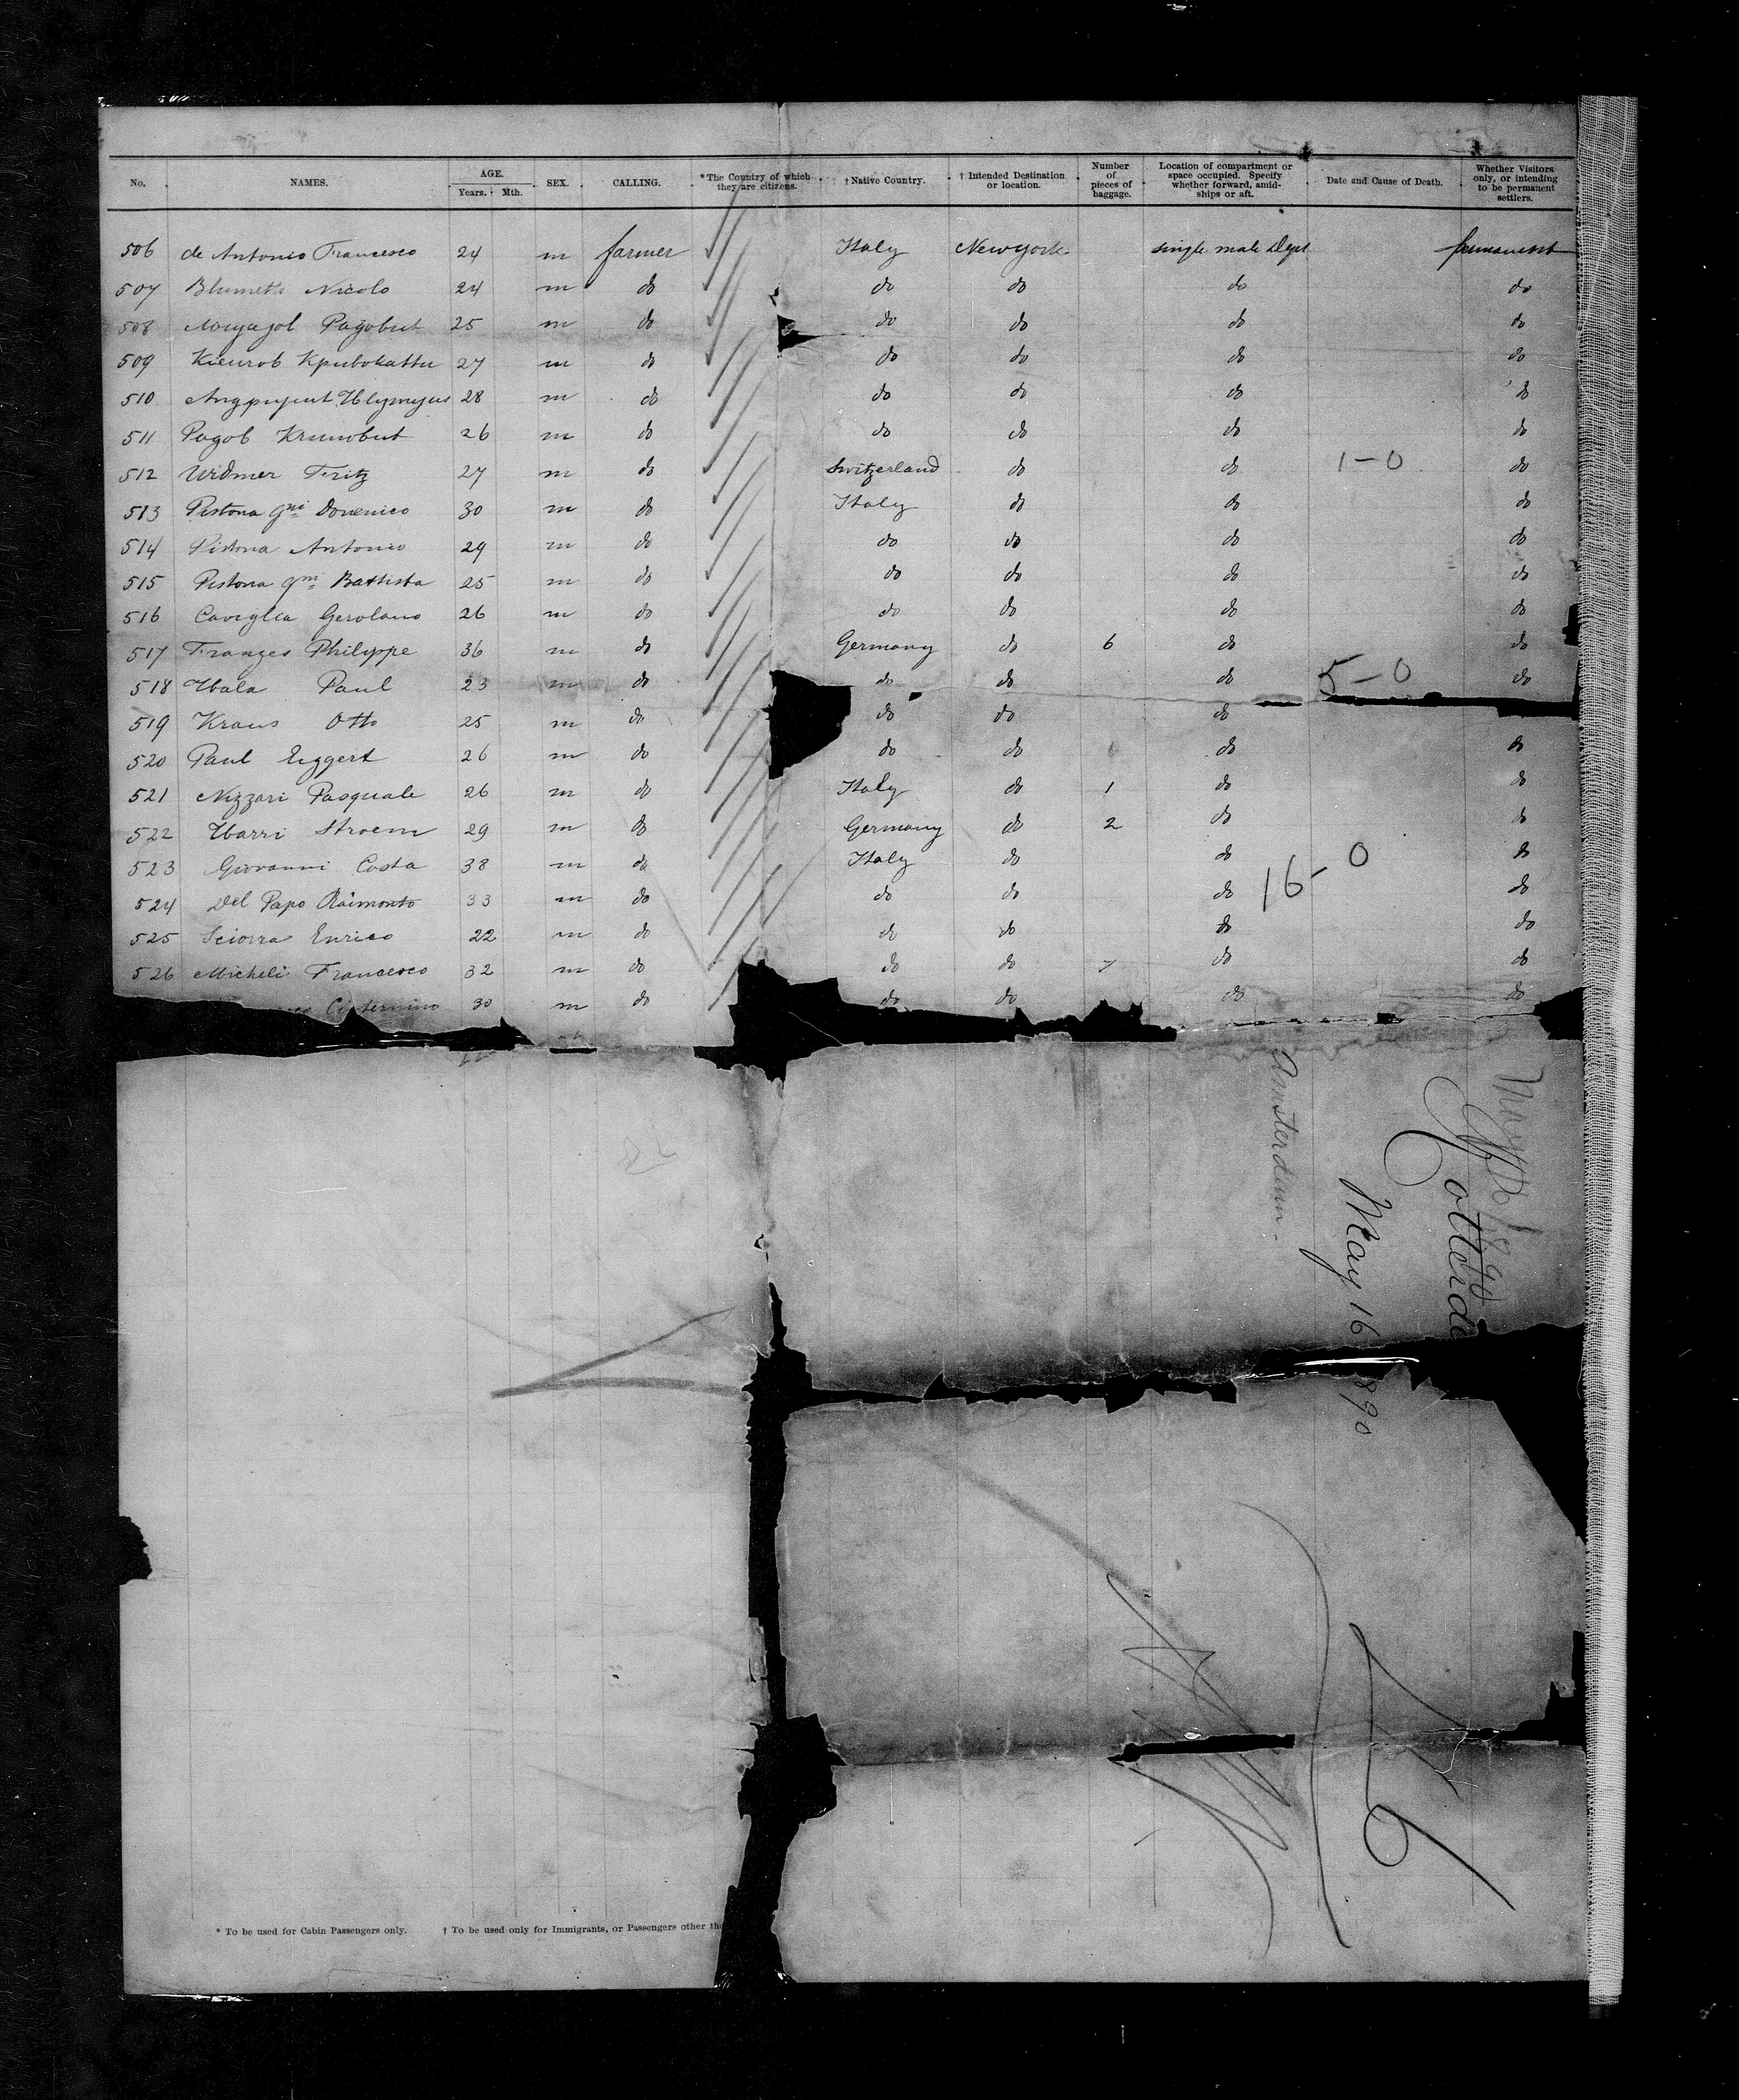 No. NAMES. AGE. Years. Mth. SEX. CALLING. *The Country of which they are citizens. †Native Country. † Intended Destination or location. Number of pieces of baggage. Location of compartment or space occupied. Specify whether forward, amid-ships or aft. Date and Cause of Death. Whether Visitors only, or intending to be permanent settlers.
506 de Antonio Francesco 24 m farmer Italy New york single male Dept permanent
507 Nicolo 24 m do do do do do
508 25 m do do do do do
509 27 m do do do do do
510 28 m do do do do do
511 26 m do do do do do
512 Widmer Fritz 27 m do Switzerland do do 1-0 do
513 Pistona Domenico 30 m do Italy do do do
514 Pistona Antonio 29 m do do do do do
515 Pistona Battista 25 m do do do do do
516 Caviglia Gerolamo 26 m do do do do do
517 Philippe 36 m do Germany do 6 do do
518 Paul 23 m do do do do 5-0 do
519 Kraus Otto 25 m do do do do
520 Paul Eggert 26 m do do do do do
521 Nizzari Pasquale 26 m do Italy do 1 do do
522 Stroem 29 m do Germany do 2 do do
523 Giovanni Costa 38 m do Italy do do 16-0 do
524 Del Papo Raimonto 33 m do do do do do
525 Sciorra Enrico 22 m do do do do do
526 Micheli Francesco 32 m do do do 7 do do
Cisternino 30 m do do do do do
Amsterdam.
May 16 890
Rotterd
* To be used for Cabin Passengers only. † To be used only for Immigrants, or Passengers other th